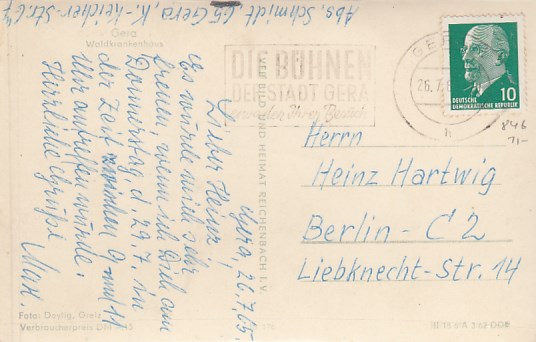 Abs. Schmidt, 65 Gera, K.-Keicher-Str. 67
Gera
Waldkrankenhaus
Gera, 26.7.65.
Lieber Heinz!
Es würde mich sehr
freuen, wenn ich Dich am
Donnerstag d. 29.7. in
der Zeit zwischen 9 und 11
Uhr antreffen würde.
Herzliche Grüße
Max.
Foto: Deylig, Greiz
Verbraucherpreis DM
VEB BILD UND HEIMAT REICHENBACH I. V.
DIE BÜHNEN
DER STADT GERA
erwarten Ihren Besuch
GE
26.7.6
h
10
DEUTSCHE
DEMOKRATISCHE REPUBLIK
846
71-
Herrn
Heinz Hartwig
Berlin - C 2
Liebknecht-Str. 14
DDR